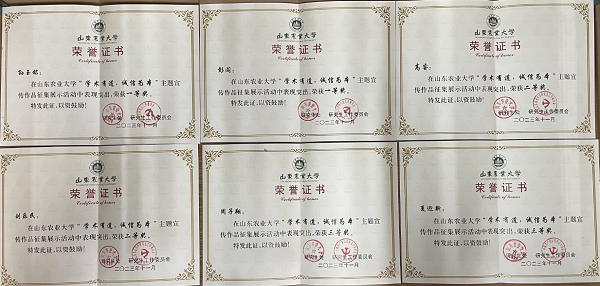 山东农业大学
荣誉证书
Certificate of honor
在山东农业大学"学术有道，诚信为本"主题宣
传作品征集展示活动中表现突出，荣获一等奖。
特发此证，以资鼓励！
研究生处 研究生工作委员会
二〇二三年十一月
山东农业大学
荣誉证书
Certificate of honor
彭阔：
在山东农业大学"学术有道，诚信为本"主题宣
传作品征集展示活动中表现突出，荣获二等奖。
特发此证，以资鼓励！
研究生处 研究生工作委员会
二〇二三年十一月
山东农业大学
荣誉证书
Certificate of honor
在山东农业大学"学术有道，诚信为本"主题宣
传作品征集展示活动中表现突出，荣获二等奖。
特发此证，以资鼓励！
研究生处 研究生工作委员会
二〇二三年十一月
山东农业大学
荣誉证书
Certificate of honor
在山东农业大学"学术有道，诚信为本"主题宣
传作品征集展示活动中表现突出，荣获二等奖。
特发此证，以资鼓励！
研究生处 研究生工作委员会
二〇二三年十一月
山东农业大学
荣誉证书
Certificate of honor
周子翔：
在山东农业大学"学术有道，诚信为本"主题宣
传作品征集展示活动中表现突出，荣获三等奖。
特发此证，以资鼓励！
研究生处 研究生工作委员会
二〇二三年十一月
山东农业大学
荣誉证书
Certificate of honor
夏迎新：
在山东农业大学"学术有道，诚信为本"主题宣
传作品征集展示活动中表现突出，荣获三等奖。
特发此证，以资鼓励！
研究生处 研究生工作委员会
二〇二三年十一月